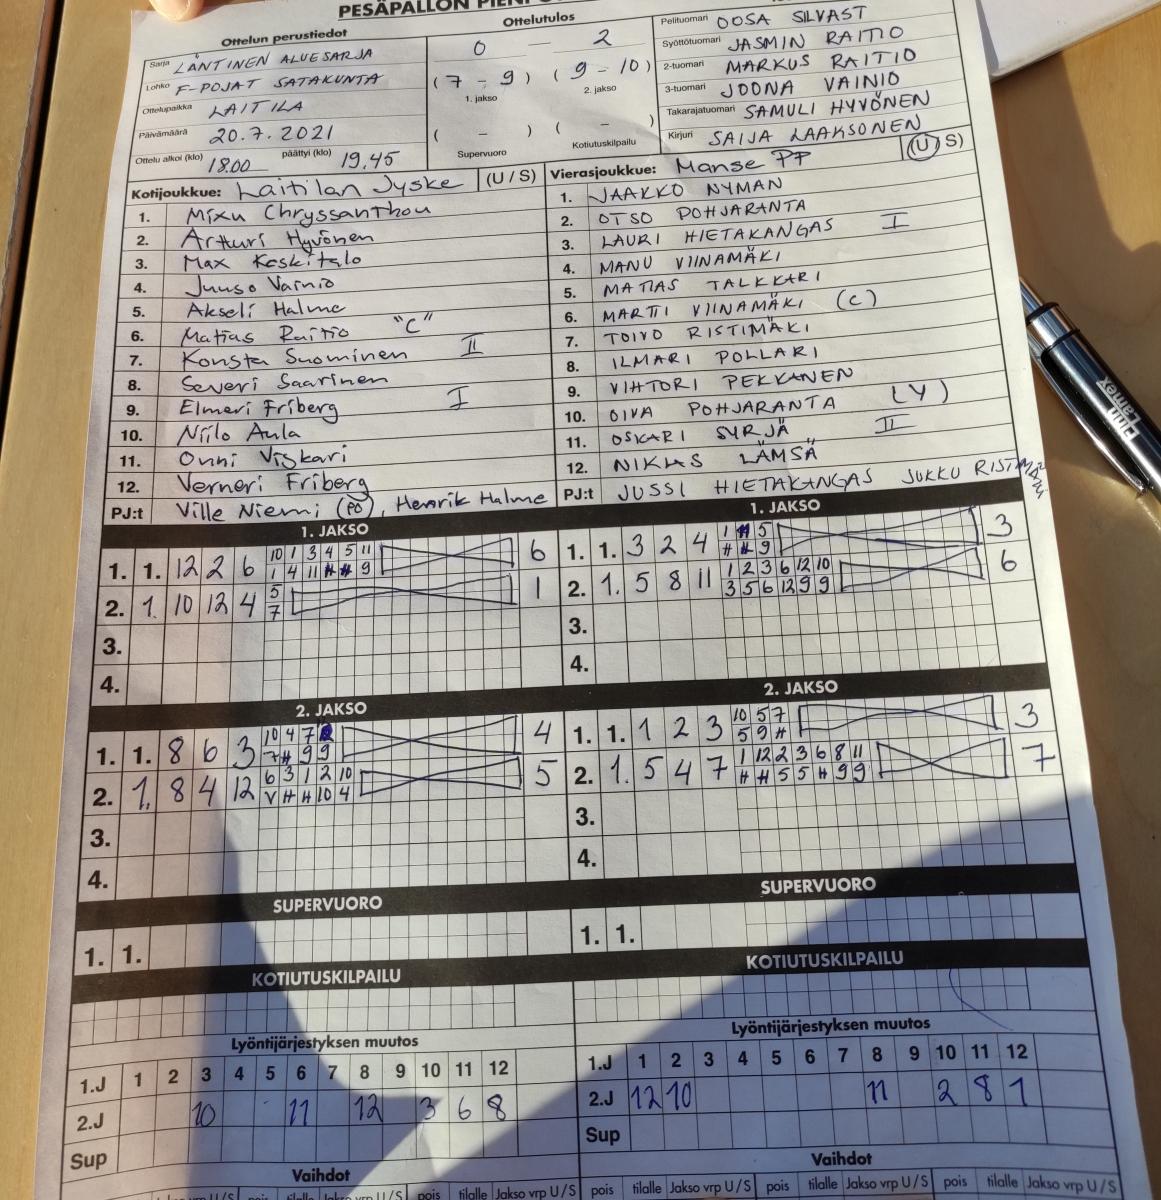 PESÄPALLON
Ottelun perustiedot
Sarja LÄNTINEN ALUESARJA
Lohko F-POJAT SATAKUNTA
Ottelupaikka LAITILA
Päivämäärä 20.7.2021
Ottelu alkoi (klo) 18.00 päättyi (klo) 19.45
Ottelutulos
0 — 2
(7 - 9) (9 - 10)
1. jakso 2. jakso
( - ) ( - )
Supervuoro Kotiutuskilpailu
Pelituomari OOSA SILVAST
Syöttötuomari JASMIN RAITIO
2-tuomari MARKUS RAITIO
3-tuomari JOONA VAINIO
Takarajatuomari SAMULI HYVÖNEN
Kirjuri SAIJA LAAKSONEN
Kotijoukkue: Laitilan Jyske (U / S)
1. Mixu Chryssanthou
2. Artturi Hyvönen
3. Max Koskitalo
4. Juuso Vainio
5. Akseli Halme
6. Matias Raitio "C"
7. Konsta Suominen II
8. Severi Saarinen
9. Elmeri Friberg I
10. Niilo Aula
11. Onni Viskari
12. Verneri Friberg
PJ:t Ville Niemi (PO), Henrik Halme
Vierasjoukkue: Manse PP (U / S)
1. JAAKKO NYMAN
2. OTSO POHJARANTA
3. LAURI HIETAKANGAS I
4. MANU VIINAMÄKI
5. MATIAS TALKKARI
6. MARTTI VIINAMÄKI (C)
7. TOIVO RISTIMÄKI
8. ILMARI POLLARI
9. VIHTORI PEKKANEN
10. OIVA POHJARANTA (V)
11. OSKARI SYRJÄ II
12. NIKLAS LÄMSÄ
PJ:t JUSSI HIETAKANGAS JUKKU RISTIMÄKI
1. JAKSO
1. 1. 12 2 6 10 1 3 4 5 11 6
1 4 11 # # 9
2. 1. 10 12 4 5 1
7
3.
4.
1. JAKSO
1. 1. 3 2 4 1 # 5 3
# # 9
2. 1. 5 8 11 1 2 3 6 12 10 6
3 5 6 12 9 9
3.
4.
2. JAKSO
1. 1. 8 6 3 10 4 7 4
7 # 9 9
2. 1. 8 4 12 6 3 1 2 10 5
V # # 10 4
3.
4.
2. JAKSO
1. 1. 1 2 3 10 5 7 3
5 9 #
2. 1. 5 4 7 1 12 2 3 6 8 11 7
# # 5 5 # 9 9
3.
4.
SUPERVUORO
1. 1.
SUPERVUORO
1. 1.
KOTIUTUSKILPAILU
KOTIUTUSKILPAILU
Lyöntijärjestyksen muutos
1.J 1 2 3 4 5 6 7 8 9 10 11 12
2.J 10 11 12 3 6 8
Sup
Lyöntijärjestyksen muutos
1.J 1 2 3 4 5 6 7 8 9 10 11 12
2.J 12 10 11 2 8 1
Sup
Vaihdot
U/S pois tilalle Jakso vrp U/S pois tilalle Jakso vrp U/S
Vaihdot
pois tilalle Jakso vrp U/S pois tilalle Jakso vrp U/S pois tilalle Jakso vrp U/S
Finn
Lamex